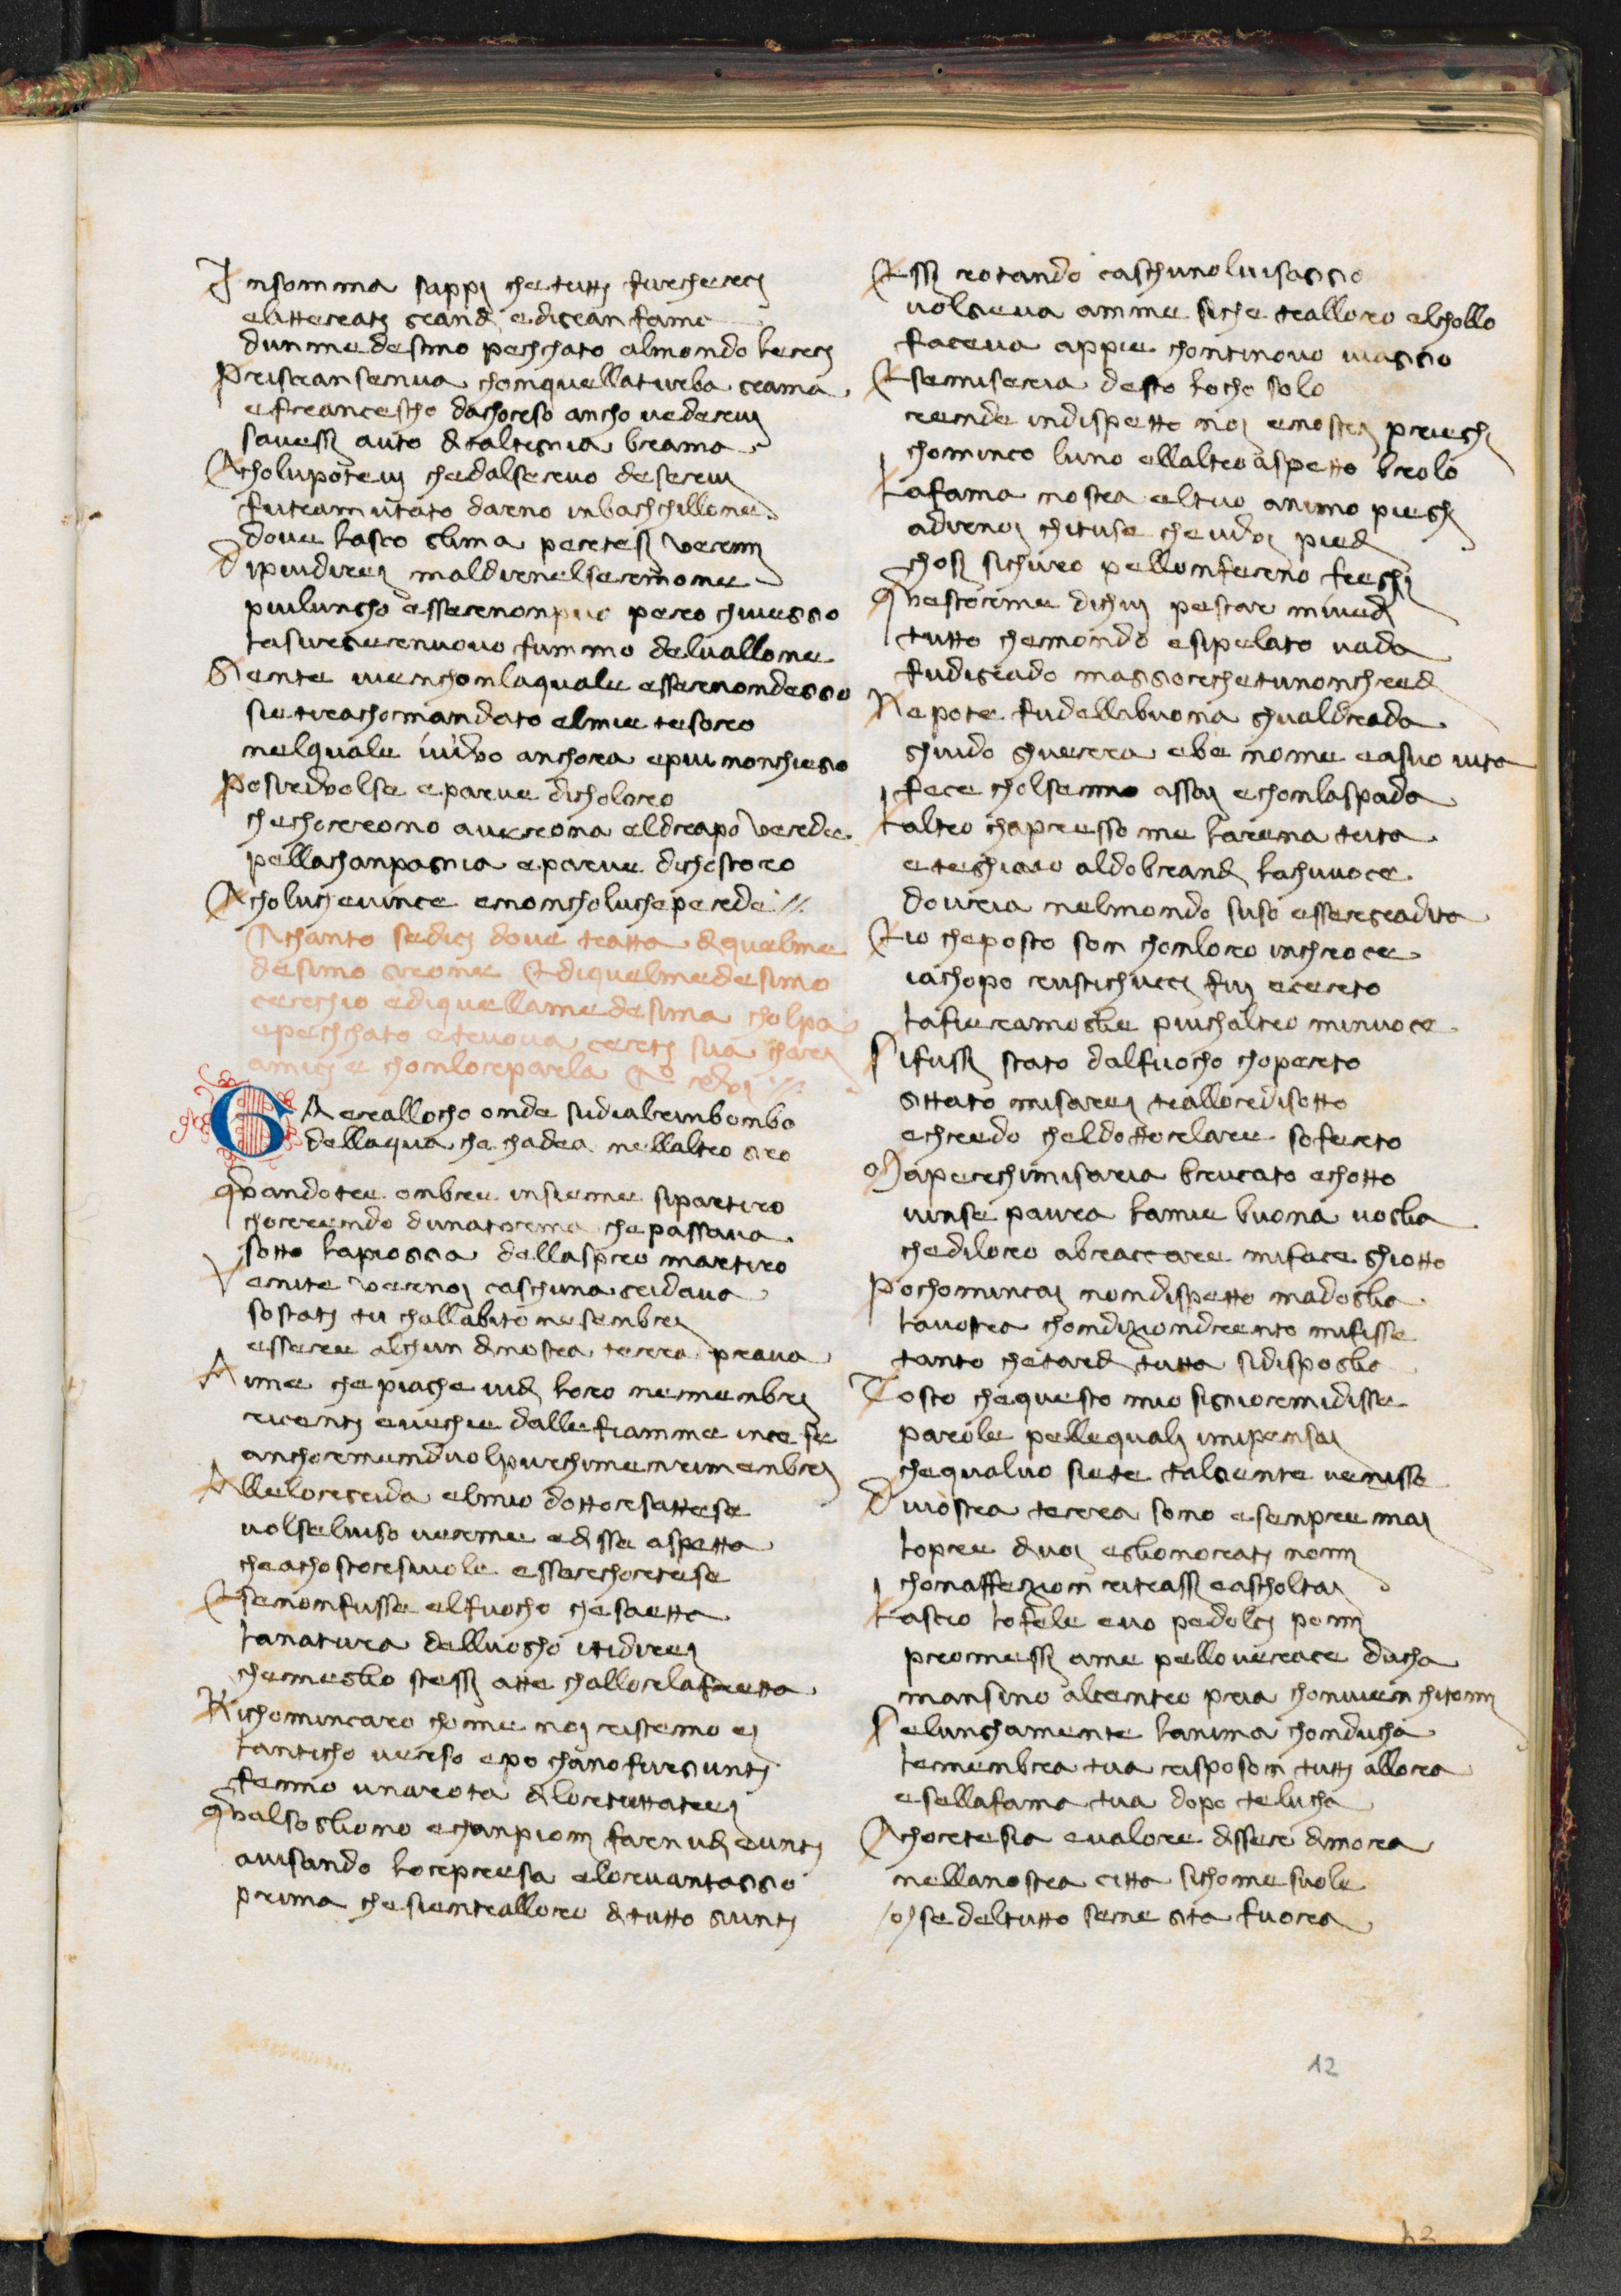 Insomma sappi che tutti fur chercj
elitterati grand edigran fama
dunmedesimo pechchato almondo lercj
Priscian senva chonquellaturba grama
efrancescho dachorso ancho vederuj
savessi auto di taltignia brama
Cholupotevj chedalservo deservj
futramutato darno inbachchillone
dove lascio glima protesi nervj
Dipiudirej maldirnelsermone
piulungho esser nonpuo pero chiveggio
lasurgernuovo fummo delvallone
Gente vienchonlaquale essernondeggio
sietirachomandato elmie tesoro
nelquale vivo anchora epiu nonchiego
Posirivolse eparve dicholoro
chechorrono averona eldrapo verde
pellachanpagnia eparve dichostoro
Choluichevince enoncholuicheperde
Chanto sedicj dove tratta diquelme
desimo girone Ediquelmedesimo
cerchio ediquellamedesima cholpa
epechchato etruova certj sua charj
amicj e chonlorparla C° xvj
GIA erallocho onde sudialrinbonbo
dellaqua che chadea nellaltro giro
Quandotre onbre insieme sipartiro
chorrendo dunatorma chepassava
sotto lapioggia dellaspro martiro
Venite vernoj caschuna gridava
sostati tu challabitonesembrj
essere alchun dinostra terra prava
Aime che piaghe vidi loro nemenbrj
ricentj evechie dallefiamme incese
anchormenduolpurchimenrimenbrj
Allelorgrida elmio dottoresattese
volselviso verme edisse aspetta
cheachostorsivole esserchortese
Esenonfusse elfuocho chesaetta
lanatura delluogho itidirej
chemeglio stessi atte challorlafretta
Richominciaro chome noj ristemo ej
lanticho verso epo chanofurgiuntj
fenno unarota dilortuttatrej
Qualsogliono echanpionj farnudi euntj
avisando lorpresa elorvantaggio
prima chesientralloro dtutto giuntj
Essi rotando caschunolvisaggio
volgeva amme siche tralloro elchollo
faceva appie chontinovo viaggio
Esemiseria desto locho solo
rende indispetto noj enostrj prieghi
chomincio luno ellaltro aspetto brolo
Lafama nostra eltuo animo pieghi
adirnoj chituse cheivivj piedi
chosi sichuro pellonferno freghi
Questorme dichuj pestar mivedi
tutto chenondo esipelato vada
fudigrado maggiorchetunonchredi
Nepote fudellabuona ghualdrada
ghuido ghuerra ebe nome easuo vita
fece cholsenno assaj echonlaspada
Laltro chapresso me larena trita
e teghiaio aldobrandi lachuivoce
dovria nelmondo suso essergradita
Eio cheposto son chonloro inchroce
iachopo rustichuccj fuj ecerto
lafieramoglie piuchaltro minuoce
Sifussi stato dalfuocho choperto
gittato misarej trallordisotto
echredo cheldottorelare soferto
Maperchimisaria bruciato echotto
vinse paura lamie buona voglia
chediloro abracciare miface ghiotto
Pochominciaj nondispetto madoglia
lavostra chondiziondrento mifisse
tanto chetardi tutta sidispoglia
Tosto chequesto mio signioremidisse
parole pellequali imipensaj
chequalvo siete talgente venisse
Divostra terra sono esenpre maj
lopre divoj eglionoratj nomj
chonaffezion ritrassi eascholtaj
Lascio lofele evo pedolcj pomj
promessi ame pelloverace ducha
mansino alcentro pria chonvien chitomj
Selunghamente lanima chonducha
lemenbra tua risposon tuttj allora
esellafama tua dopo telucha
Chortesia evalore dissere dimora
nellanostra citta sichomesuole
ose deltutto sene gita fuora
12